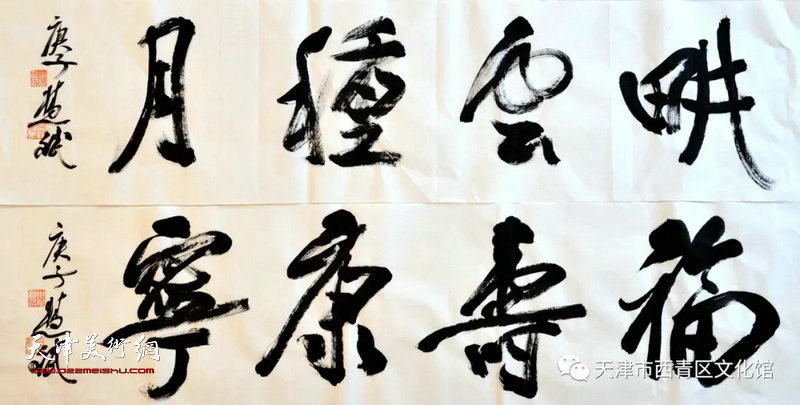 畊雲種月
庚子慧斌
福壽康寧
庚子慧斌
天津美術網
www.022meishu.com
天津市西青区文化馆